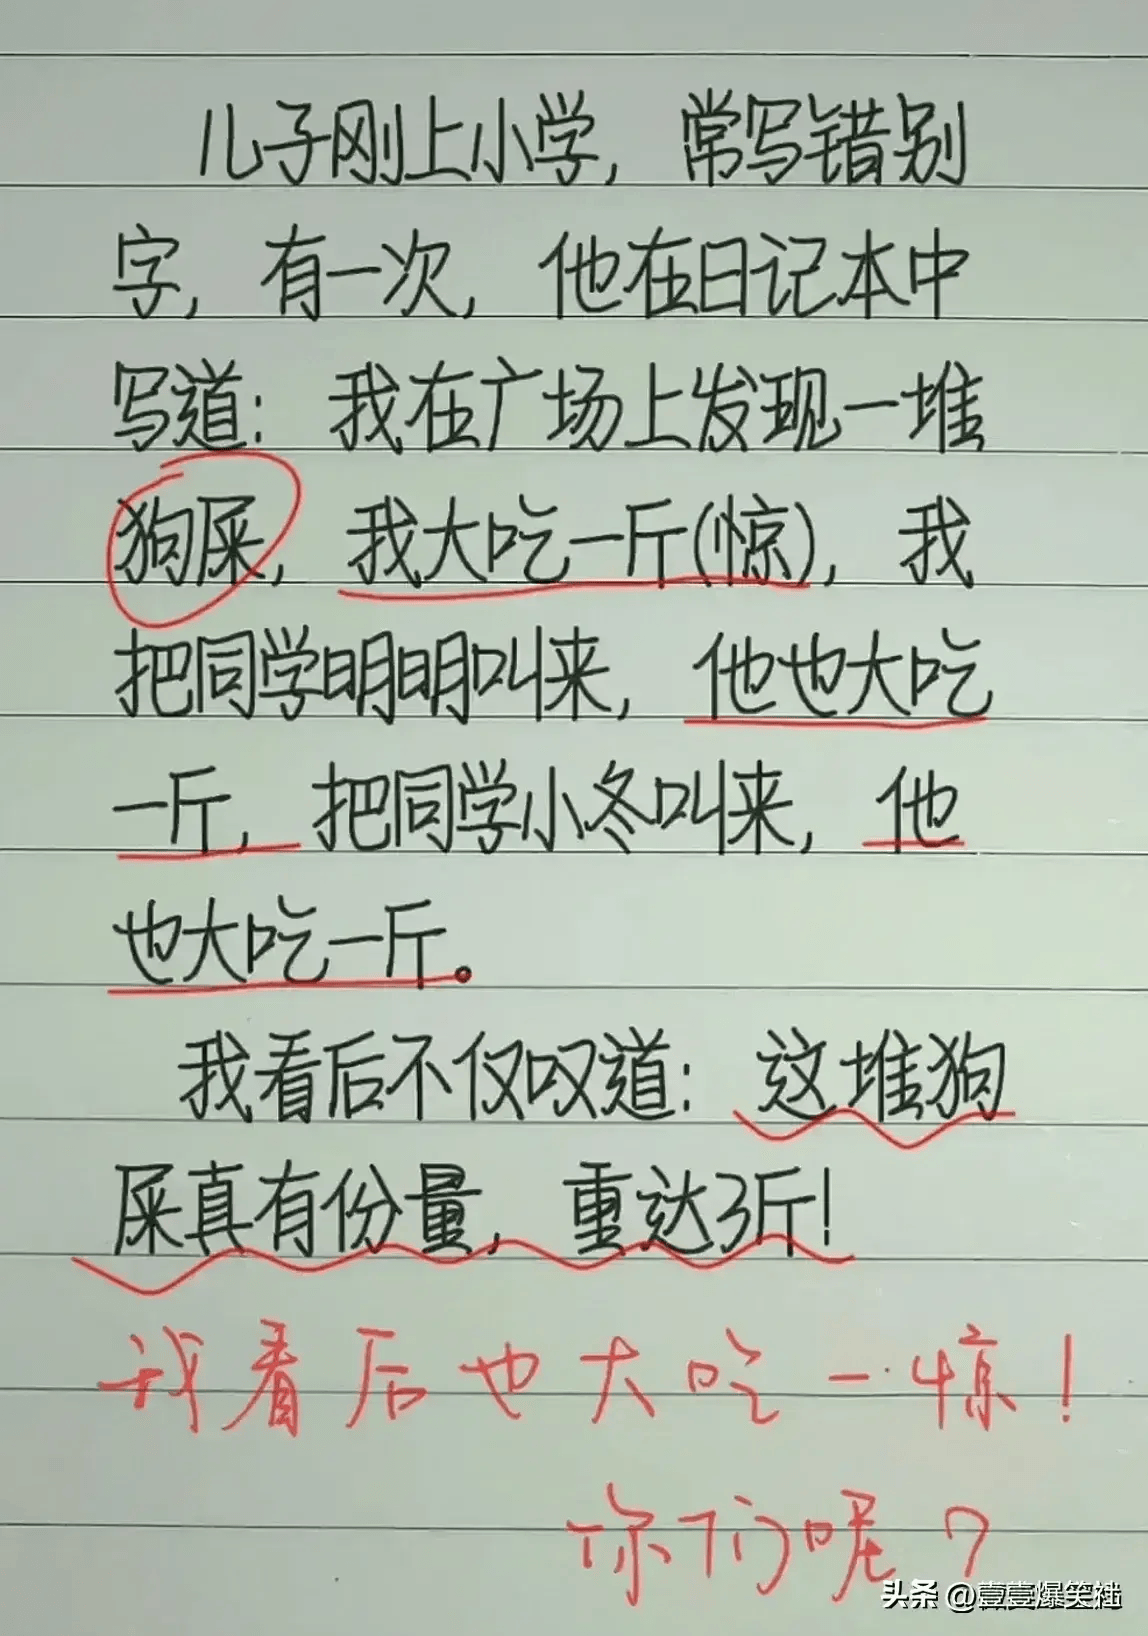 儿子刚上小学，常写错别
字，有一次，他在日记本中
写道：我在广场上发现一堆
狗屎，我大吃一斤(惊)，我
把同学明明叫来，他也大吃
一斤，把同学小冬叫来，他
也大吃一斤。
我看后不仅叹道：这堆狗
屎真有份量，重达3斤！
我看后也大吃一惊！
你们呢？
头条 @壹壹爆笑社